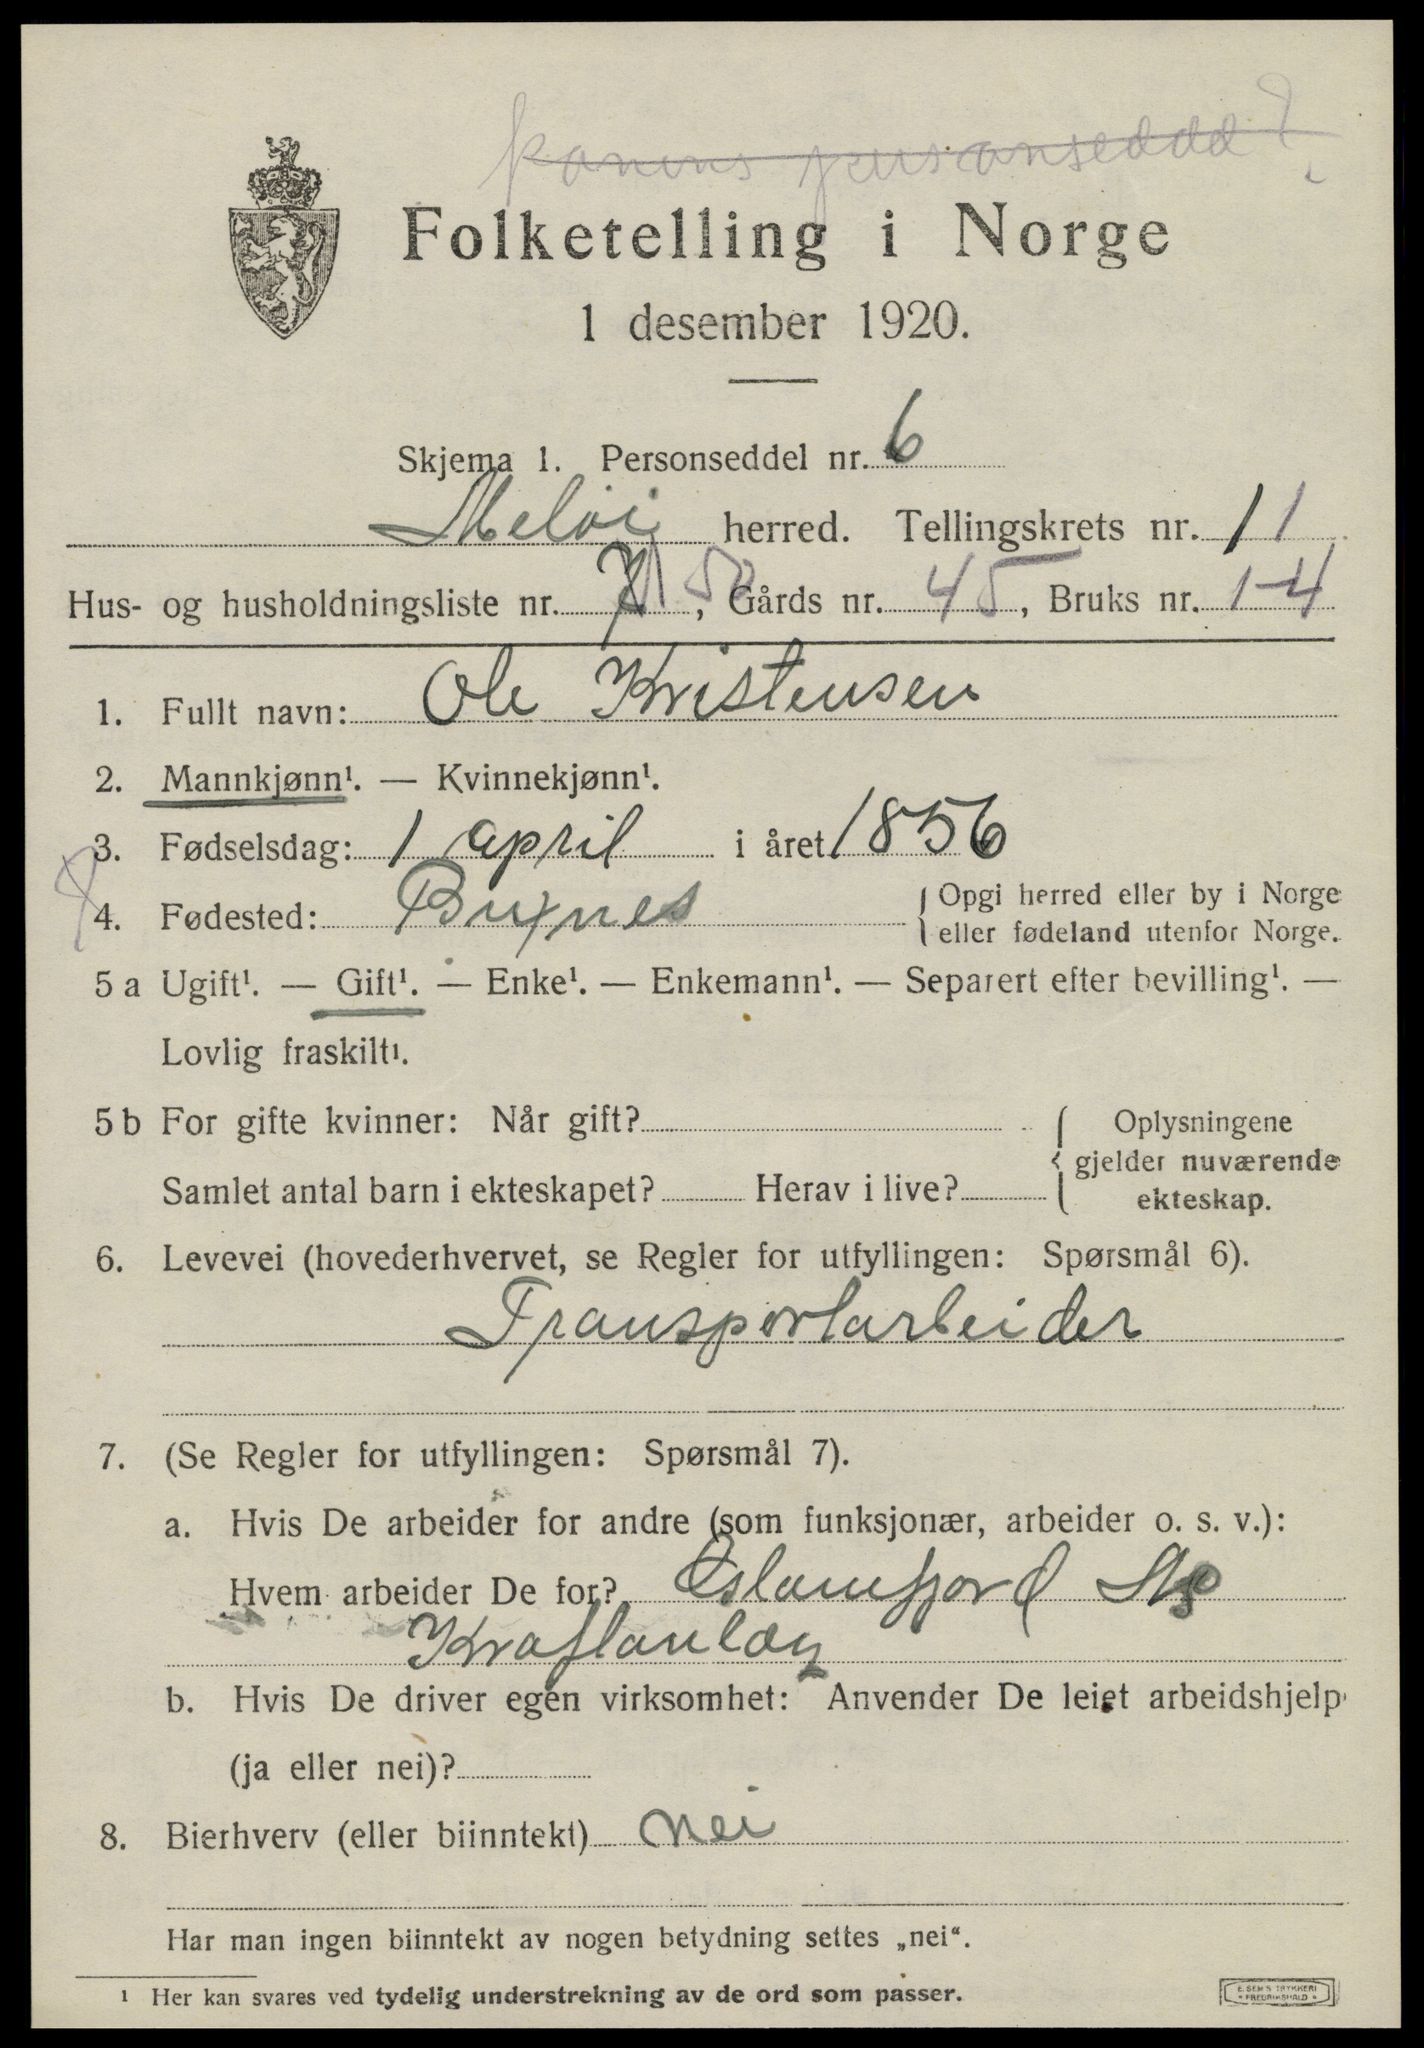 konens personseddel?
Folketelling i Norge
1 desember 1920.
Skjema 1. Personseddel nr. 6
Meløi herred. Tellingskrets nr. 11
Hus- og husholdningsliste nr. 50, Gårds nr. 45, Bruks nr. 1-4
1. Fullt navn: Ole Kristensen
2. Mannkjønn¹. — Kvinnekjønn¹.
3. Fødselsdag: 1 april i året 1856
4. Fødested: Buxnes { Opgi herred eller by i Norge
eller fødeland utenfor Norge.
5 a Ugift¹. — Gift¹. — Enke¹. — Enkemann¹. — Separert efter bevilling¹. —
Lovlig fraskilt¹.
5 b For gifte kvinner: Når gift? { Oplysningene
gjelder nuværende
Samlet antal barn i ekteskapet? Herav i live?
ekteskap.
6. Levevei (hovederhvervet, se Regler for utfyllingen: Spørsmål 6).
Transportarbeider
7. (Se Regler for utfyllingen: Spørsmål 7).
a. Hvis De arbeider for andre (som funksjonær, arbeider o. s. v.):
Hvem arbeider De for?
Kraftanlæg
b. Hvis De driver egen virksomhet: Anvender De leiet arbeidshjelp
(ja eller nei)?
8. Bierhverv (eller biinntekt) nei
Har man ingen biinntekt av nogen betydning settes „nei“.
¹ Her kan svares ved tydelig understrekning av de ord som passer.
E. SEM'S TRYKKERI
* FREDRIKSHALD *